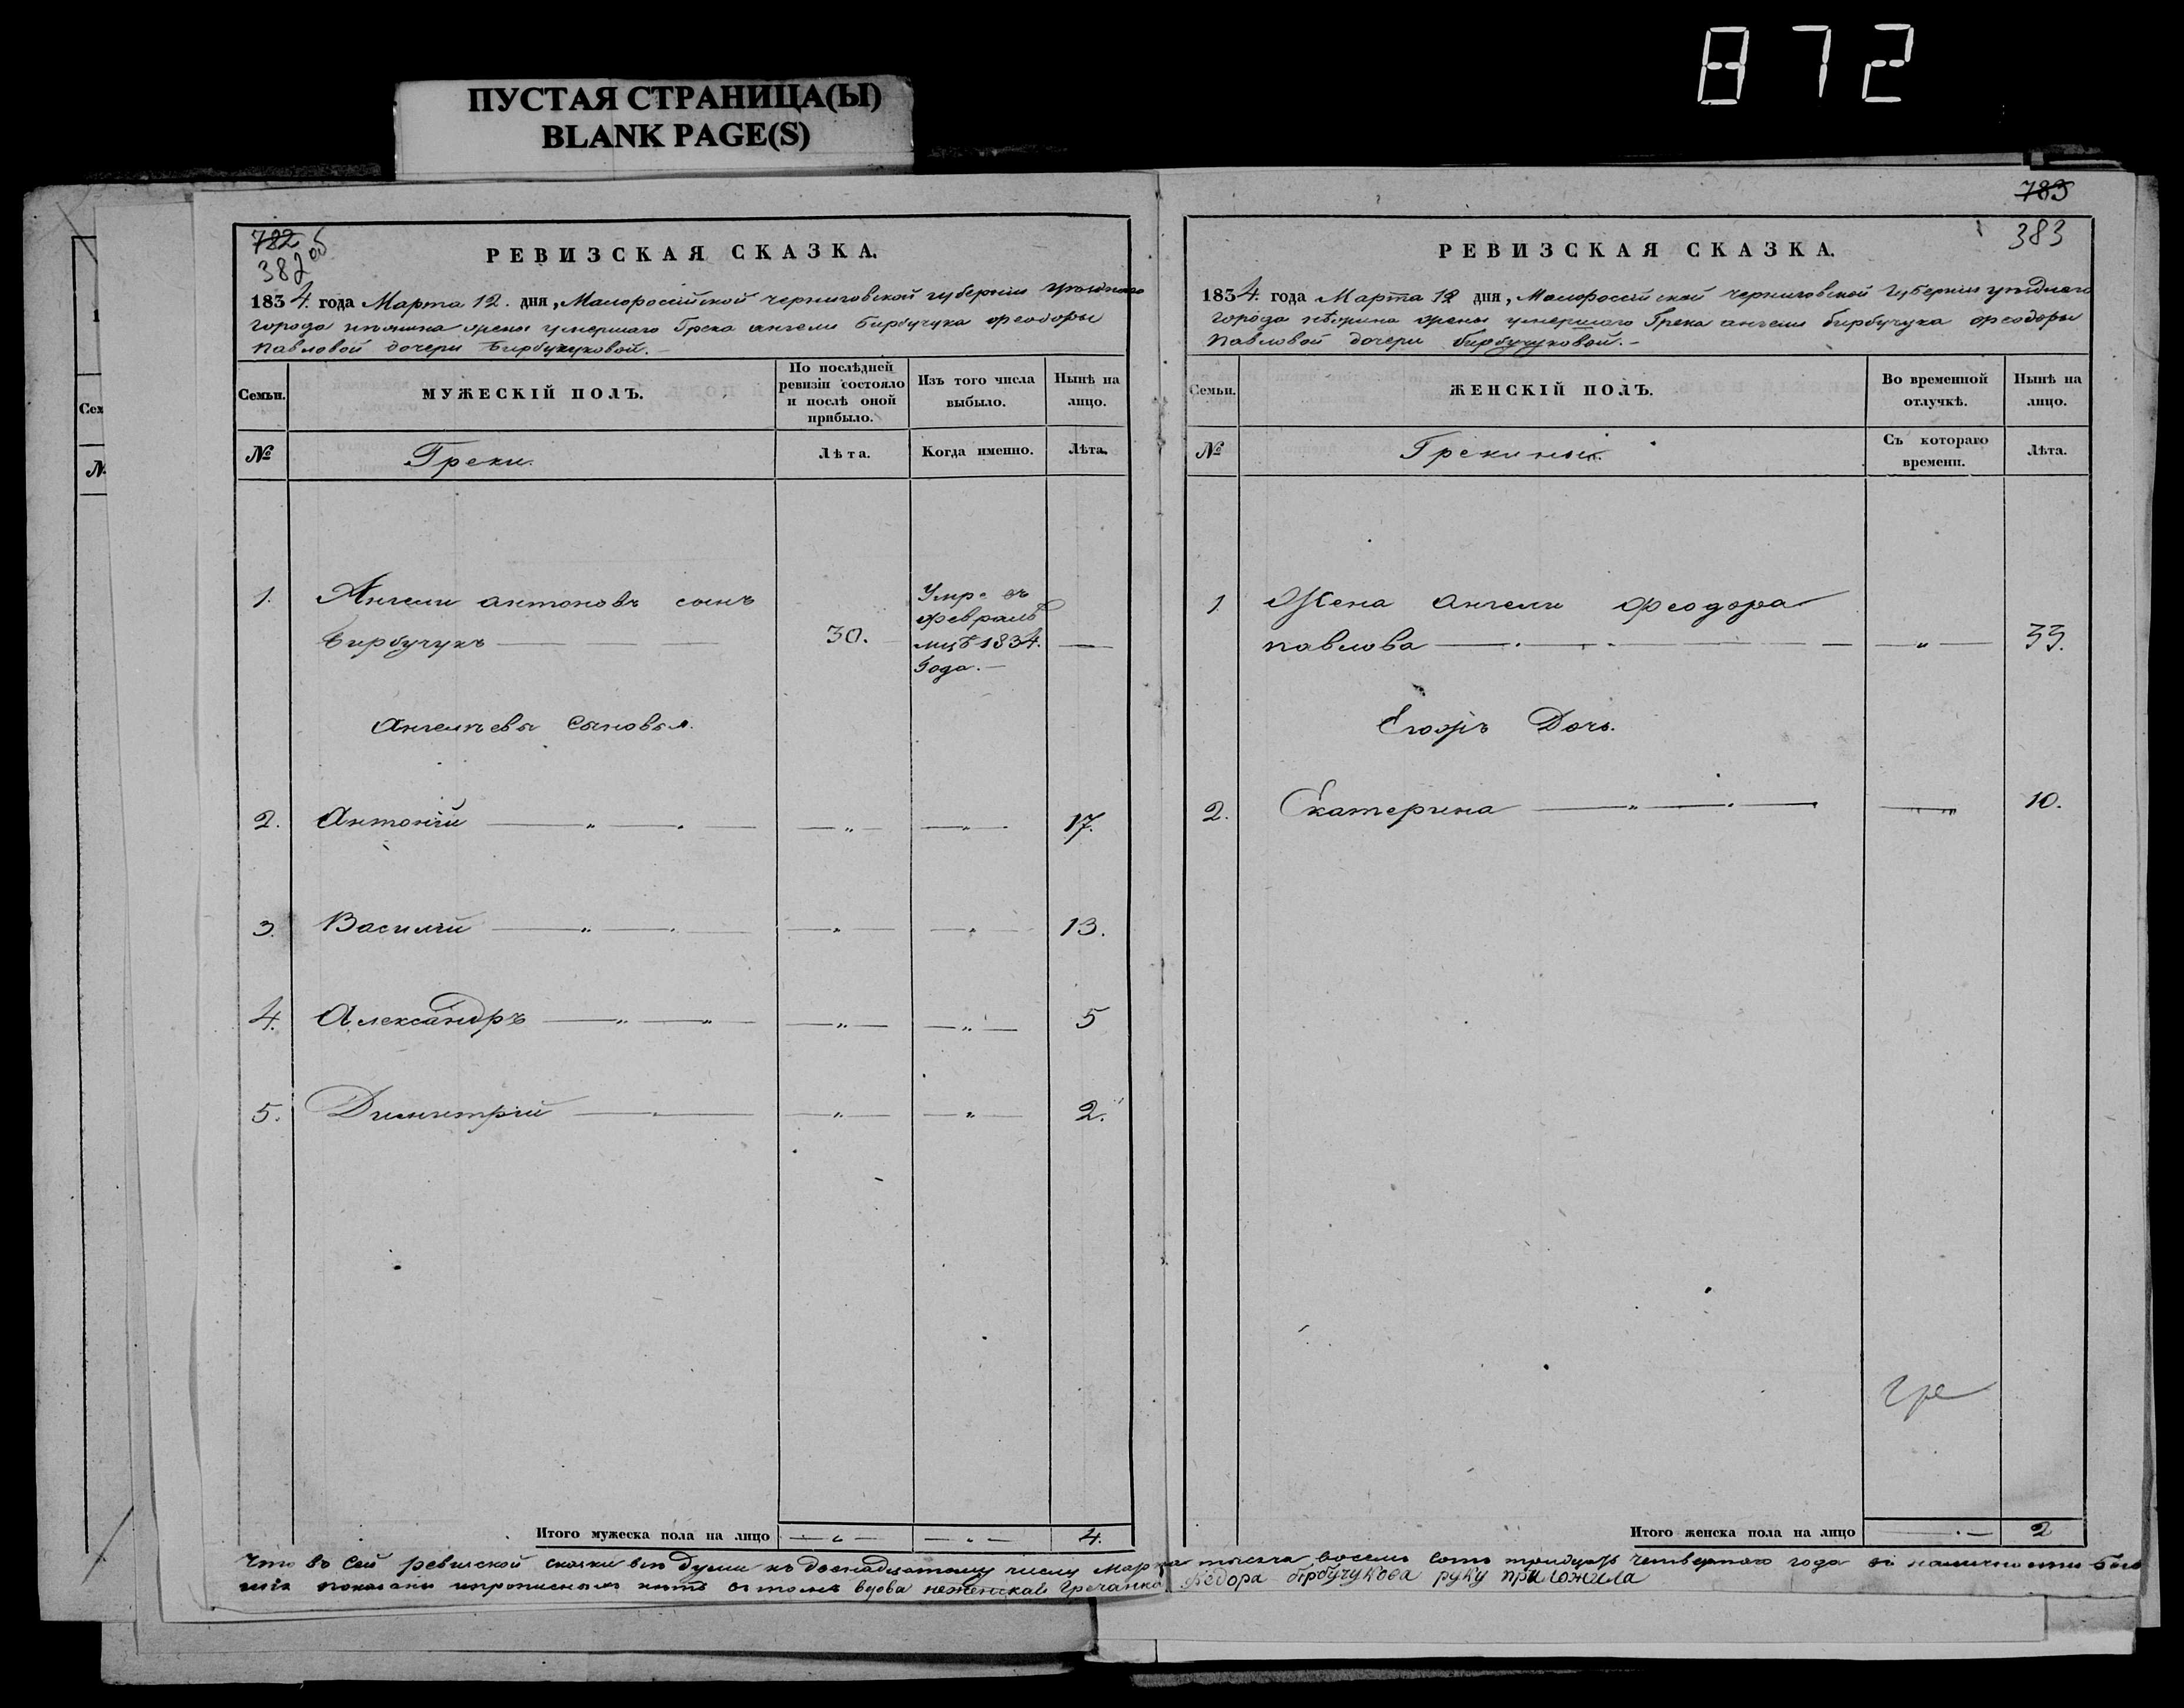 872
ПУСТАЯ СТРАНИЦА(Ы)
BLANK PAGE(S)
782 об
382
РЕВИЗСКАЯ СКАЗКА.
1834. года Марта 12. дня, Малоросійской черниговской губерніи уѣзднаго
города нѣжина жены умершаго Грека ангели Бирбучука феодоры
Павловой дочери Бирбучуковой.
Семьи.
МУЖЕСКІЙ ПОЛЪ.
По послѣдней ревизіи состояло и послѣ оной прибыло.
Изъ того числа выбыло.
Нынѣ на лицо.
№
Греки.
Лѣта.
Когда именно.
Лѣта.
1. Ангели антоновъ сынъ
Бирбучукъ 30.
Умре въ
февралѣ
мцѣ 1834.
Года.
Ангелиевы Сыновья.
2. Антоній 17.
3. Василій 13.
4. Александръ 5
5. Димитрій 2.
Итого мужеска пола на лицо 4.
783
383
РЕВИЗСКАЯ СКАЗКА.
1834. года Марта 12 дня, Малоросійской черниговской Губерніи уѣзднаго
города нѣжина жены умершаго Грека ангели бирбучука феодоры
Павловой дочери бирбучуковой.
Семьи.
ЖЕНСКІЙ ПОЛЪ.
Во временной отлучкѣ.
Нынѣ на лицо.
№
Съ котораго времени.
Лѣта.
1 Жена ангели феодора
павлова 33.
Дочь.
2. Екатерина 10.
Итого женска пола на лицо 2
Что въ сей ревизской сказки всѣ души къ двенадцатому числу Марта тысяча восемь сотъ тридцать четвертаго года въ наличности
показаны и прописныхъ нѣтъ въ томъ вдова неженская Гречанка Федора бирбучукова руку приложила